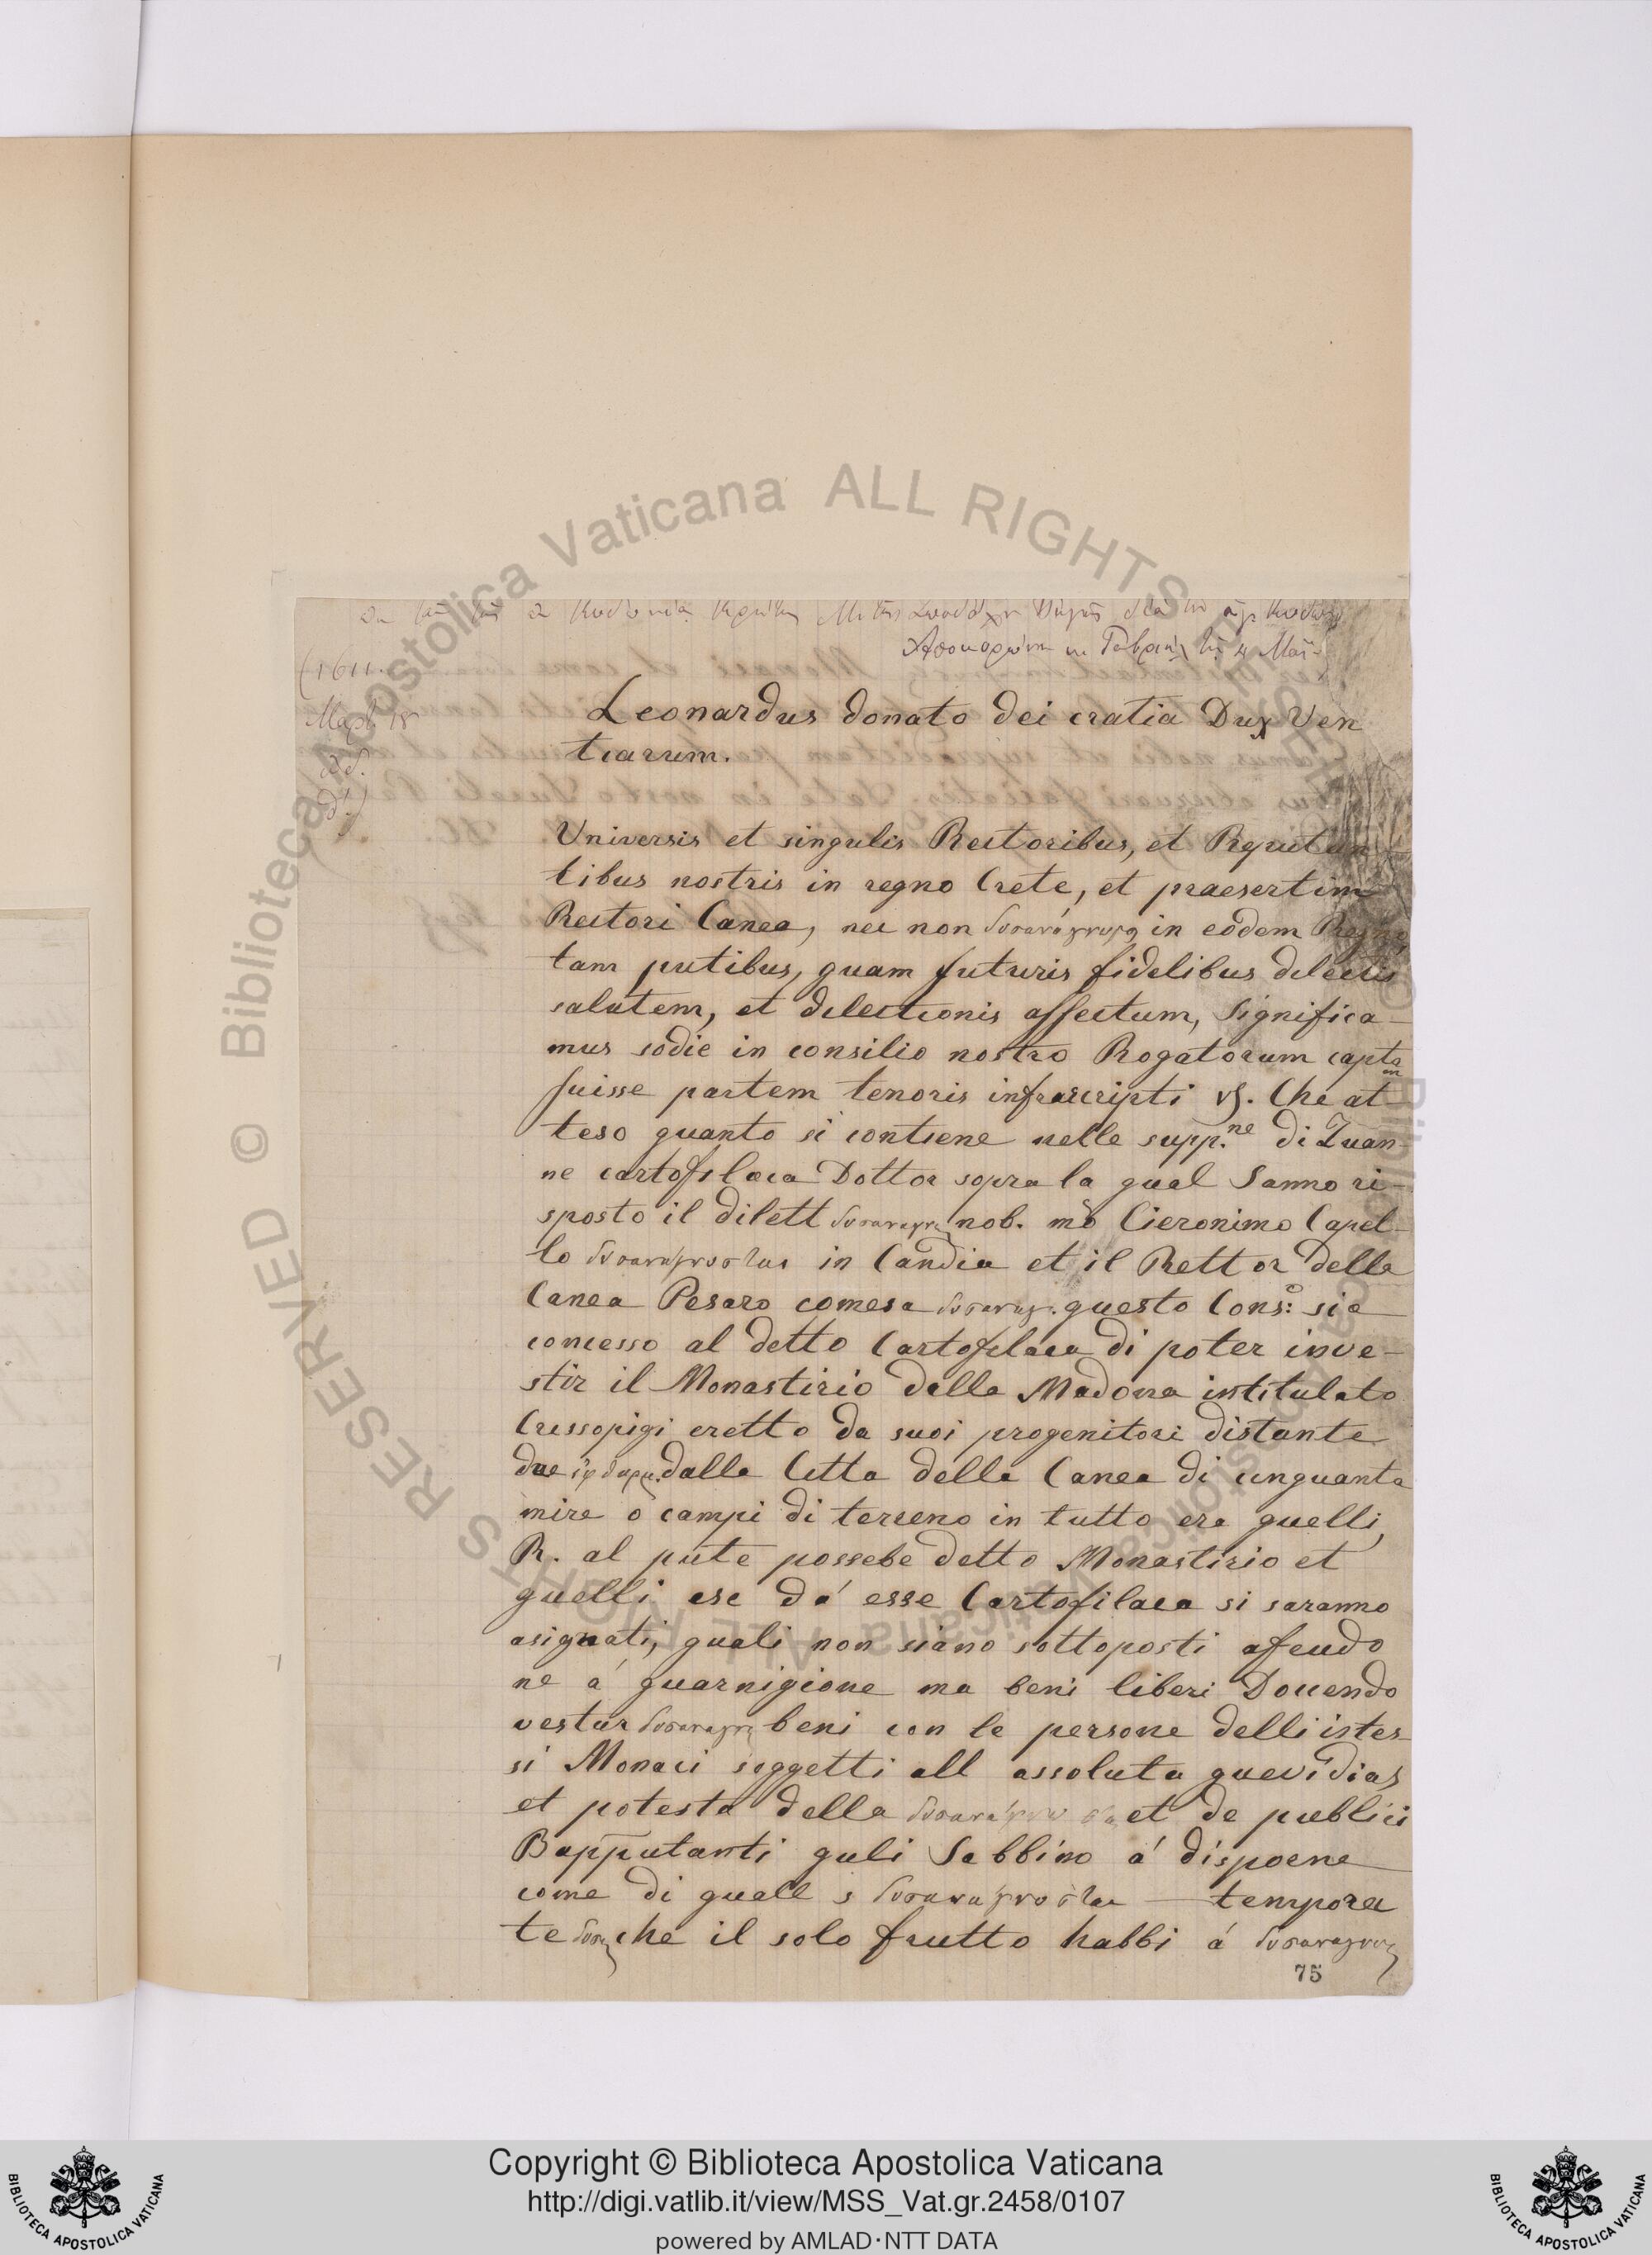 (1611.
Leonardus donato dei cratia Dux Ven
tiarum.
Universis et singulis Rectoribus, et
tibus nostris in regno Crete, et praesertim
Rectori Canea, nec non δυσανάγνωσ in eodem Regno
tam putibus, quam futuris fidelibus dilectis
salutem, et dilectionis affectum, Significa-
mus sodie in consilio nostro Rogatorum capta
fuisse partem tenoris infrascripti vs. Che at
teso quanto si contiene nelle supp.ne di Zuan
ne cartofilaca Dottor sopra la qual Sanno ri-
sposto il dilett δυσαναγν nob. mo Cieronimo Capel-
lo in Candia et il Rettor della
Canea Pesaro comesa δυσαναγ. questo Cons:o sia
concesso al detto Cartofilaca di poter inve-
stir il Monastirio della Madona intitulato
Cressopigi eretto da suoi progenitori distante
due dalla Citta della Canea di cinquanta
mire o campi di terreno in tutto era quelli,
R. al pute possebe detto Monastirio et
quelli ese dá esse Cartofilaca si saranno
asignati, quali non siano sottoposti afeudo
ne á guarnigione ma beni liberi Douendo
vestur δυσαναγν beni con le persone delli istes-
si Monaci soggetti all assoluta
et potesta della et de publici
Bapputanti quli Sabbino á dispoene
come di quall s tempora
te δυσα che il solo frutto habbi á δυσαναγνωσ
75
© Biblioteca Apostolica Vaticana ALL RIGHTS RESERVED
Copyright © Biblioteca Apostolica Vaticana
http://digi.vatlib.it/view/MSS_Vat.gr.2458/0107
powered by AMLAD·NTT DATA
BIBLIOTECA APOSTOLICA VATICANA
BIBLIOTECA APOSTOLICA VATICANA